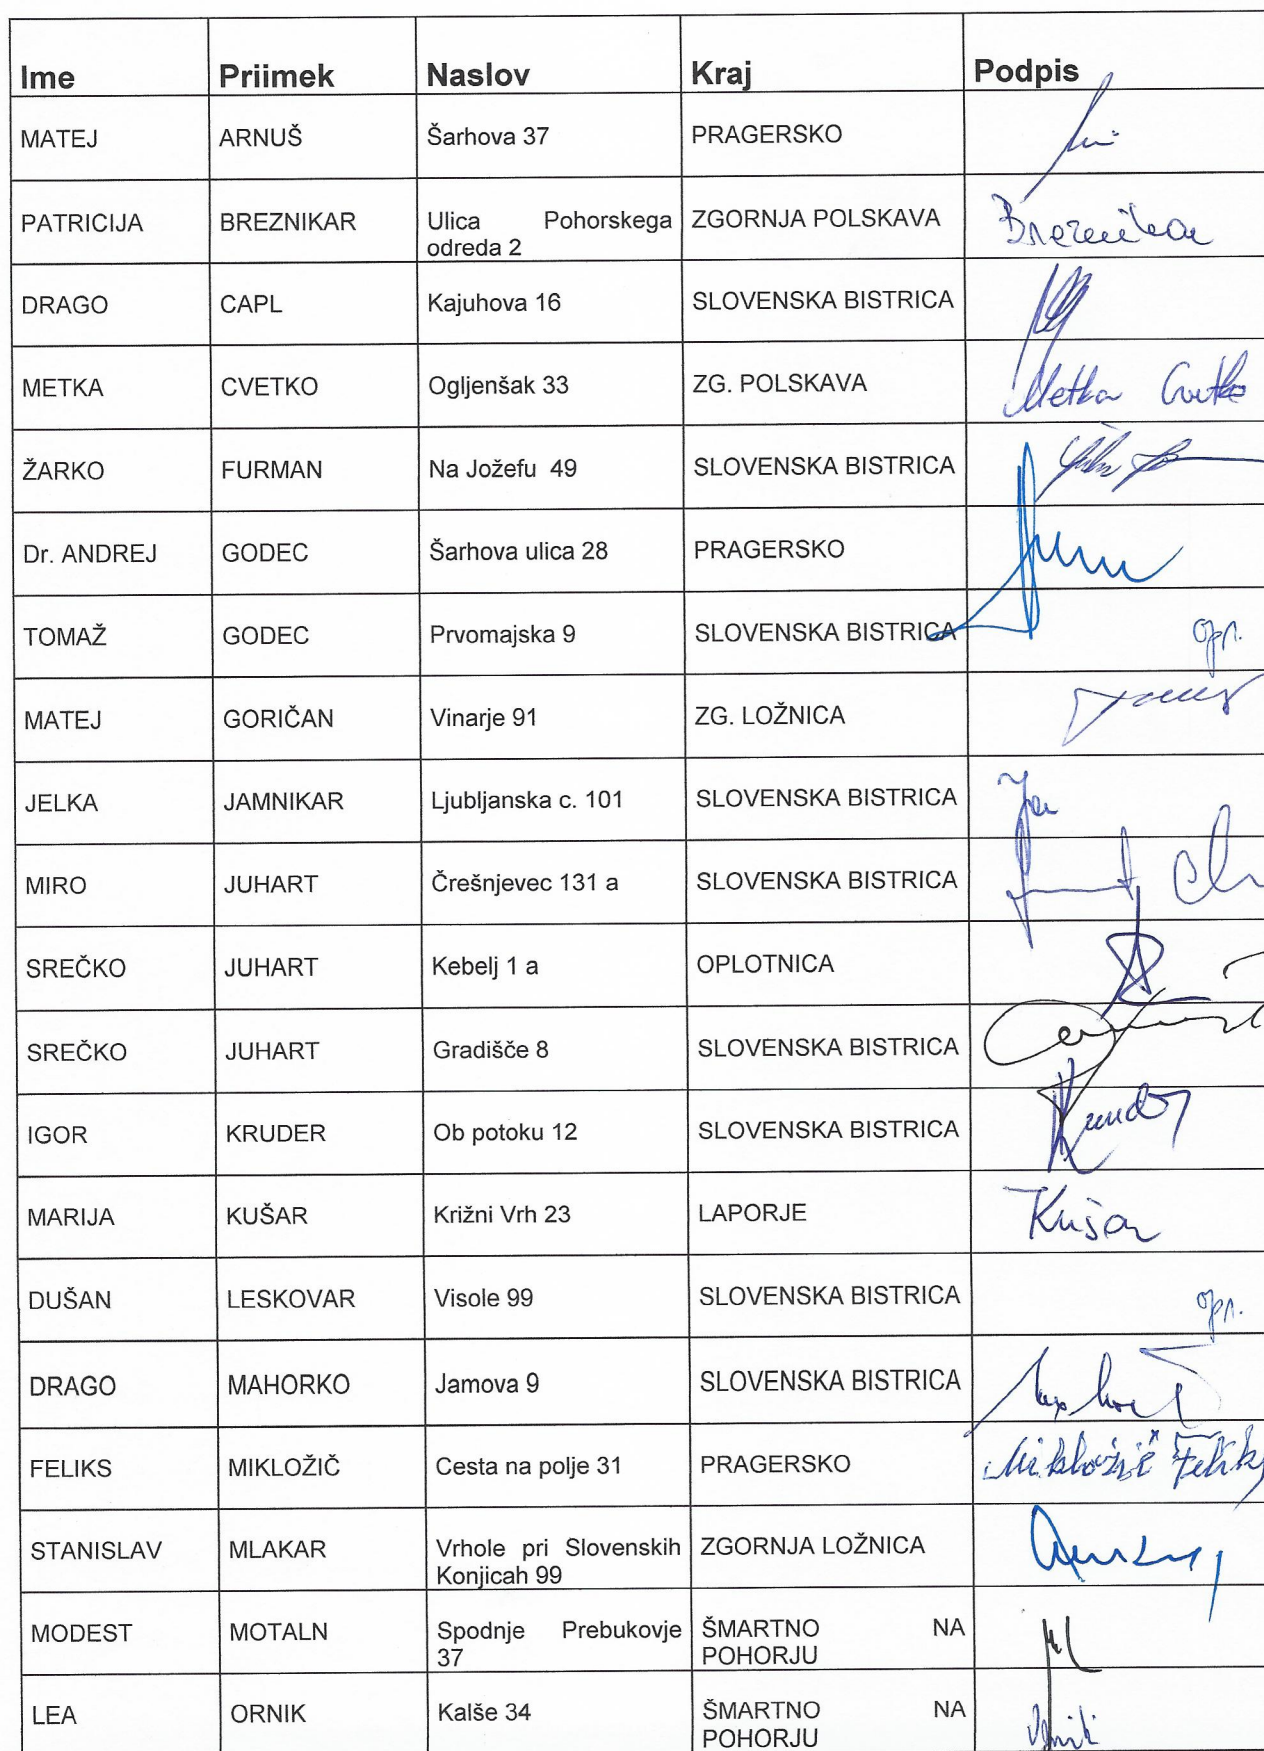 Ime Priimek Naslov Kraj Podpis
MATEJ ARNUŠ Šarhova 37 PRAGERSKO
PATRICIJA BREZNIKAR Ulica Pohorskega ZGORNJA POLSKAVA Breznikar
odreda 2
DRAGO CAPL Kajuhova 16 SLOVENSKA BISTRICA
METKA CVETKO Ogljenšak 33 ZG. POLSKAVA Metka Cvetko
ŽARKO FURMAN Na Jožefu 49 SLOVENSKA BISTRICA
Dr. ANDREJ GODEC Šarhova ulica 28 PRAGERSKO
TOMAŽ GODEC Prvomajska 9 SLOVENSKA BISTRICA opr.
MATEJ GORIČAN Vinarje 91 ZG. LOŽNICA
JELKA JAMNIKAR Ljubljanska c. 101 SLOVENSKA BISTRICA
MIRO JUHART Črešnjevec 131 a SLOVENSKA BISTRICA
SREČKO JUHART Kebelj 1 a OPLOTNICA
SREČKO JUHART Gradišče 8 SLOVENSKA BISTRICA
IGOR KRUDER Ob potoku 12 SLOVENSKA BISTRICA
MARIJA KUŠAR Križni Vrh 23 LAPORJE Kušar
DUŠAN LESKOVAR Visole 99 SLOVENSKA BISTRICA opr.
DRAGO MAHORKO Jamova 9 SLOVENSKA BISTRICA
FELIKS MIKLOŽIČ Cesta na polje 31 PRAGERSKO Mikložič Feliks
STANISLAV MLAKAR Vrhole pri Slovenskih ZGORNJA LOŽNICA
Konjicah 99
MODEST MOTALN Spodnje Prebukovje ŠMARTNO NA
37 POHORJU
LEA ORNIK Kalše 34 ŠMARTNO NA
POHORJU Ornik